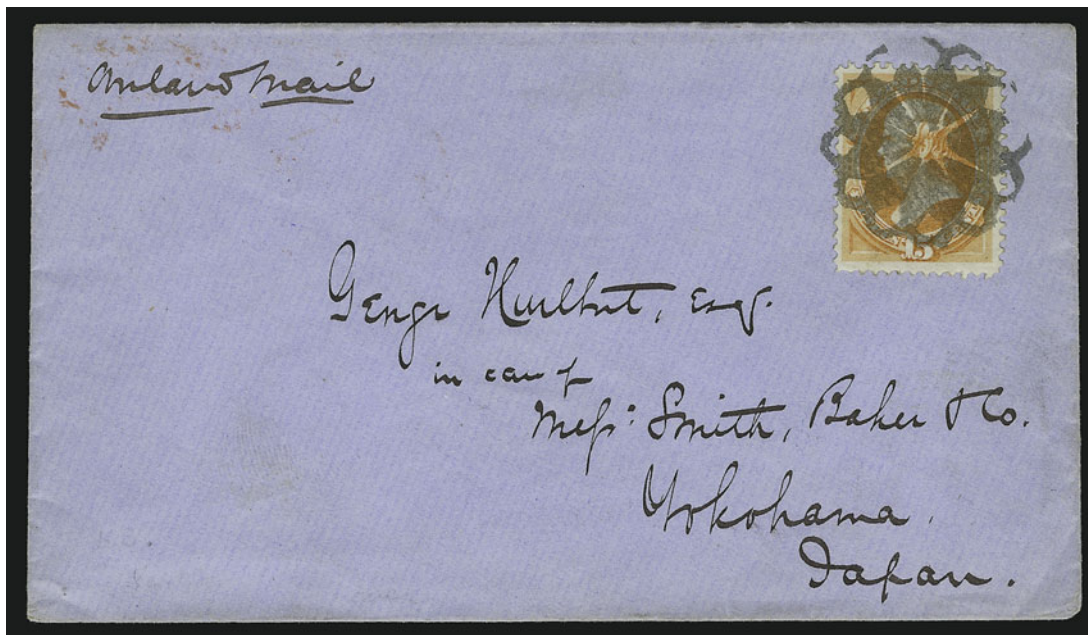 Overland Mail
15
George Hurlbut, Esq.
in care of
Mess: Smith, Baker & Co.
Yokohama.
Japan.